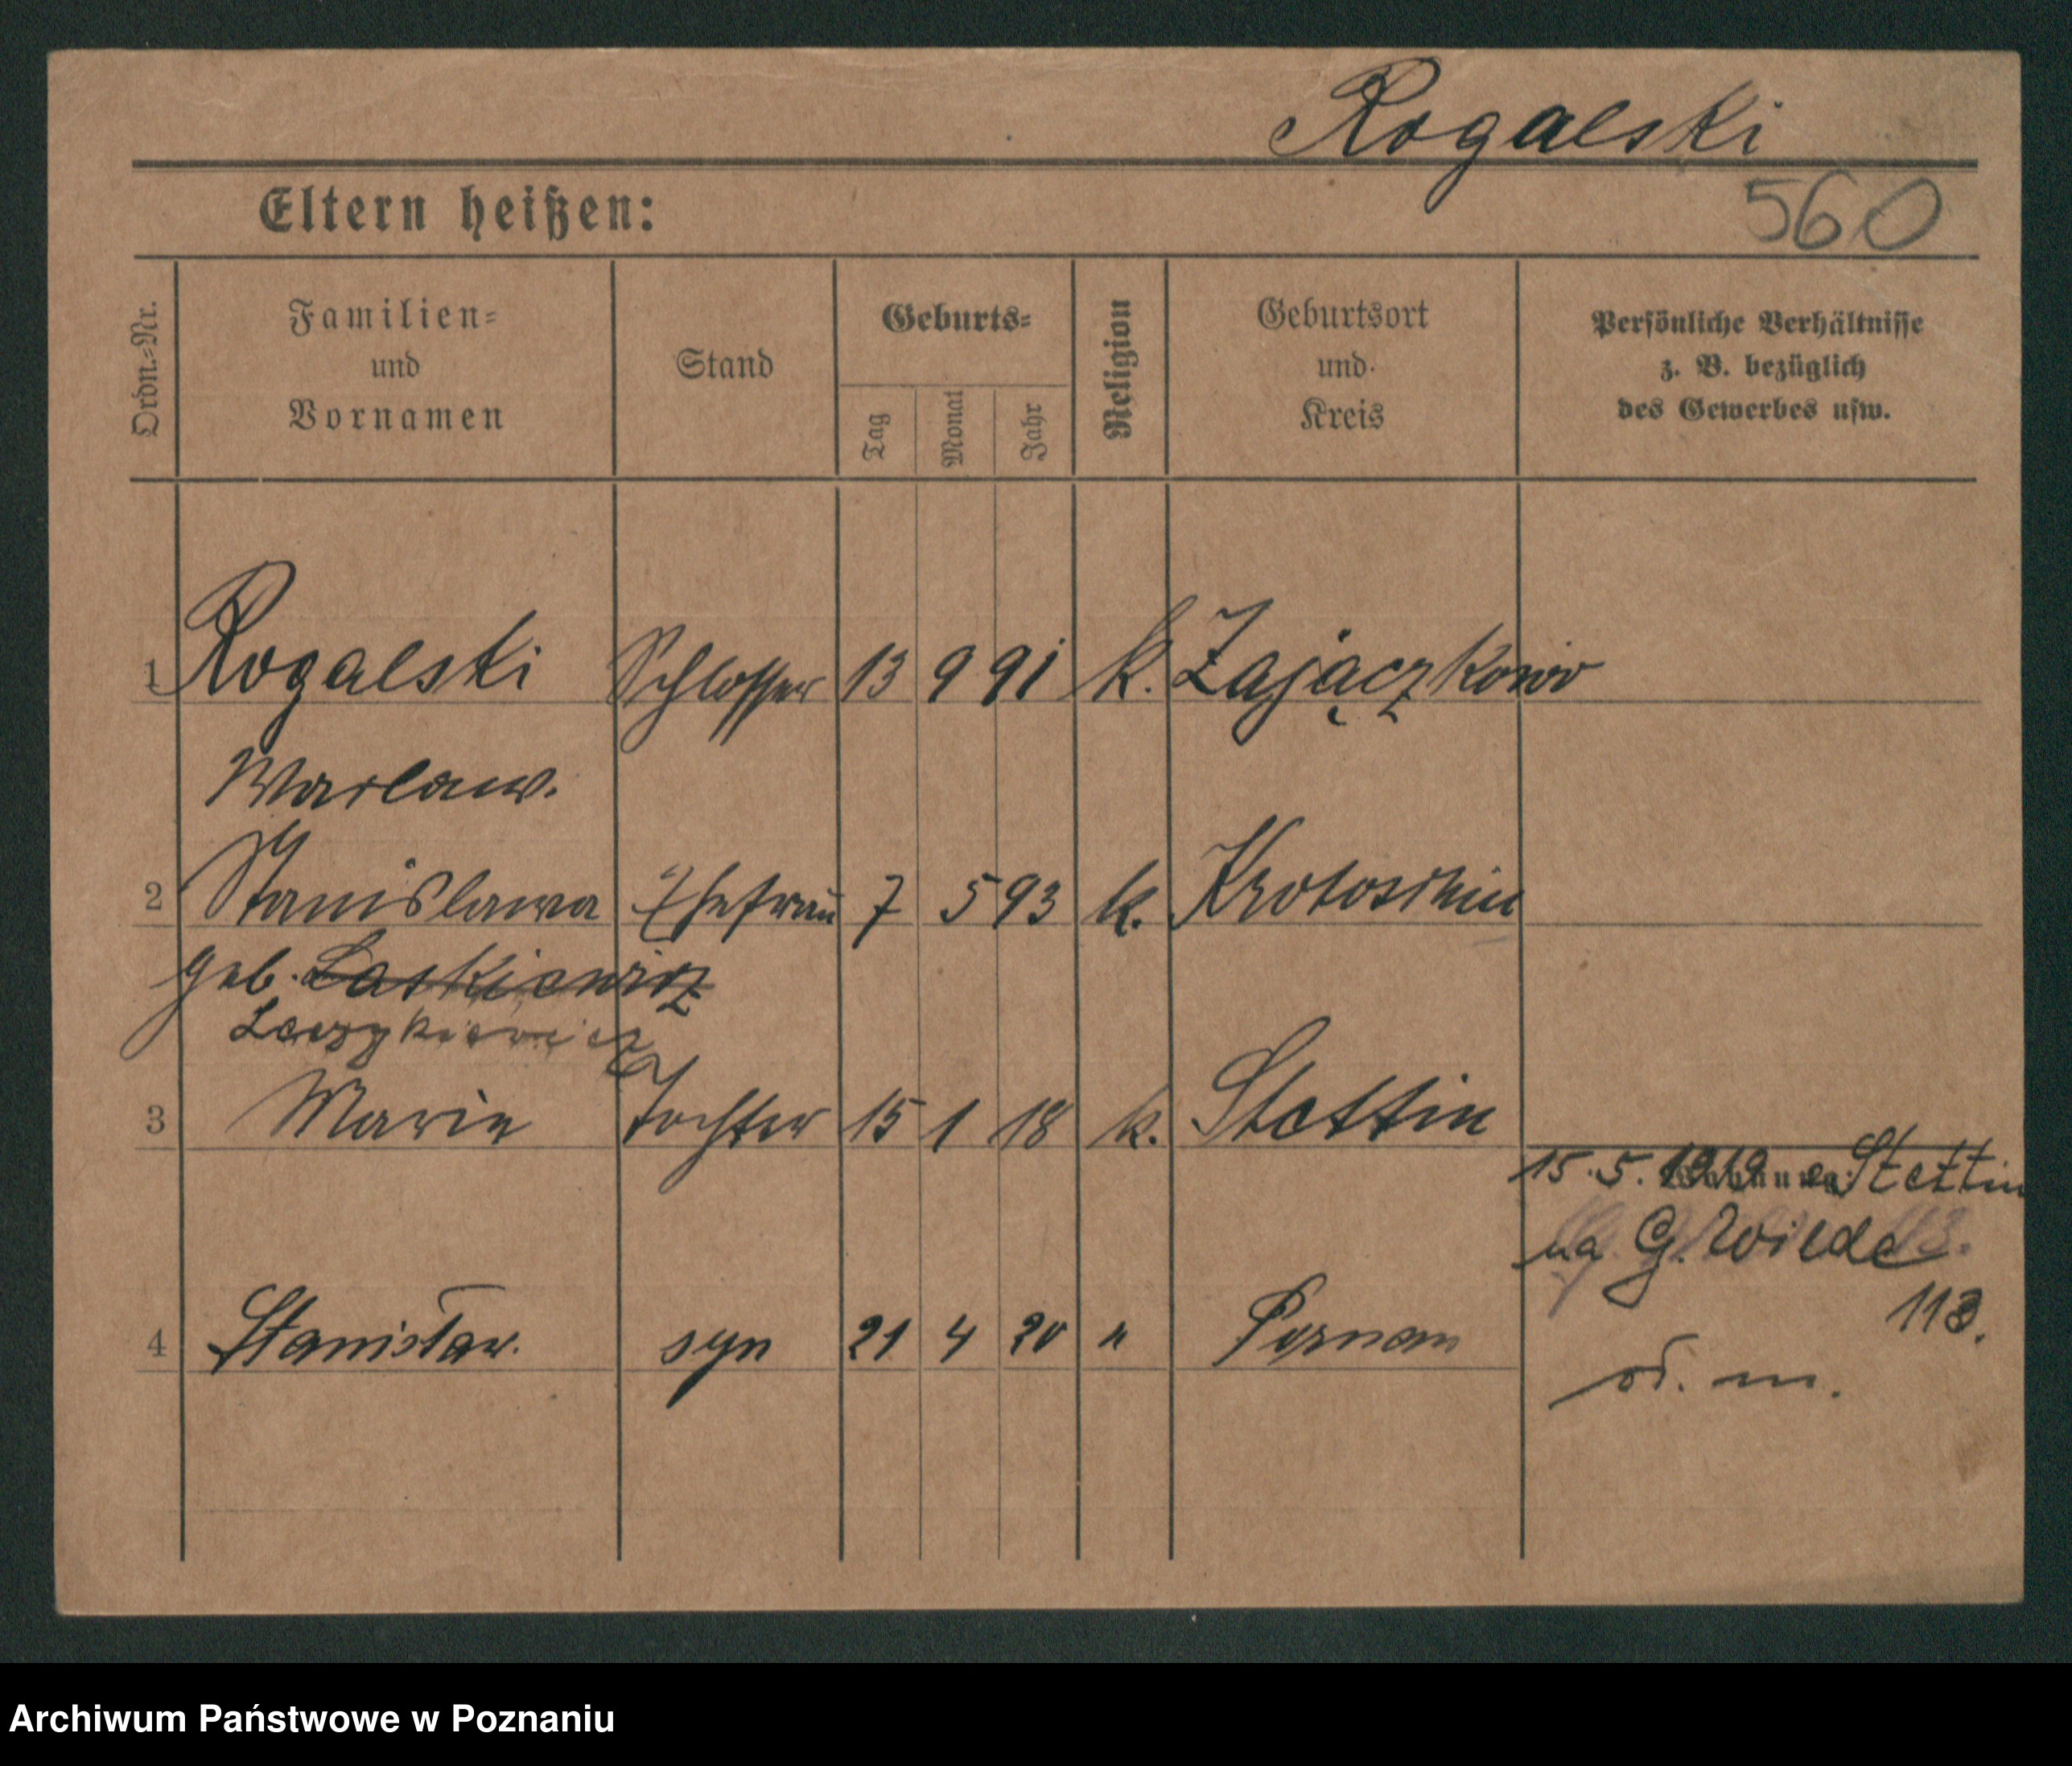 Rogalski
Eltern heißen:
560
Ordn.-Nr.
Familien-
und
Vornamen
Stand
Geburts-
Tag
Monat
Jahr
Religion
Geburtsort
und
Kreis
Persönliche Verhältnisse
z. B. bezüglich
des Gewerbes usw.
1 Rogalski Schlosser 13 9 91 k. Zajączkowo
Warlaw.
2 Stanislawa Ehefrau 7 5 93 k. Krotoschin
geb. Laskiewicz
3 Marie Tochter 15 1 18 k. Stettin
15.5.1919 Stettin
na G. Wilde
113.
4 Stanisław. syn 21 4 20 " Poznan
od. m.
Archiwum Państwowe w Poznaniu